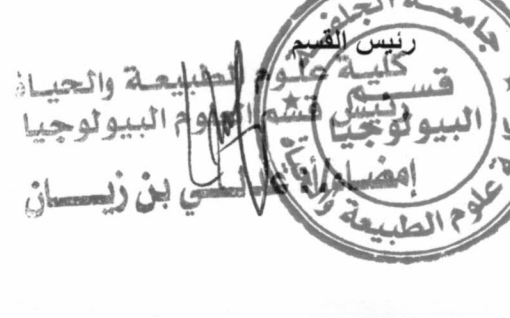 رئيس القسم
كلية علوم الطبيعة والحياة
رئيس قسم العلوم البيولوجيا
إمضاء/أ علالي بن زيان
جامعة الجلفة
قسم
البيولوجيا
علوم الطبيعة